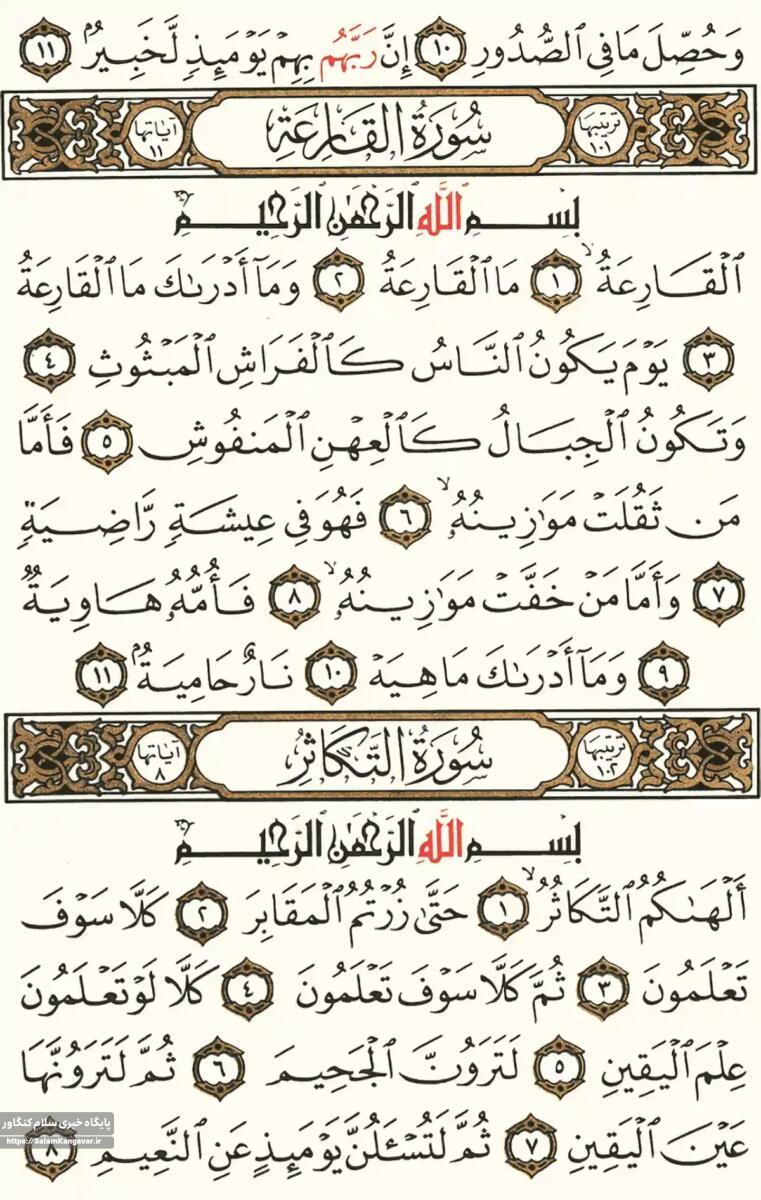 وَحُصِّلَ مَا فِي ٱلصُّدُورِ ١٠ إِنَّ رَبَّهُم بِهِمْ يَوْمَئِذٍ لَّخَبِيرٌ ١١
ترتيبها ١٠١ سُورَةُ القَارِعَةِ آياتها ١١
بِسْمِ ٱللَّهِ ٱلرَّحْمَٰنِ ٱلرَّحِيمِ
ٱلْقَارِعَةُ ١ مَا ٱلْقَارِعَةُ ٢ وَمَآ أَدْرَىٰكَ مَا ٱلْقَارِعَةُ
٣ يَوْمَ يَكُونُ ٱلنَّاسُ كَٱلْفَرَاشِ ٱلْمَبْثُوثِ ٤
وَتَكُونُ ٱلْجِبَالُ كَٱلْعِهْنِ ٱلْمَنفُوشِ ٥ فَأَمَّا
مَن ثَقُلَتْ مَوَٰزِينُهُۥ ٦ فَهُوَ فِي عِيشَةٍ رَّاضِيَةٍ
٧ وَأَمَّا مَنْ خَفَّتْ مَوَٰزِينُهُۥ ٨ فَأُمُّهُۥ هَاوِيَةٌ
٩ وَمَآ أَدْرَىٰكَ مَا هِيَهْ ١٠ نَارٌ حَامِيَةٌۢ ١١
ترتيبها ١٠٢ سُورَةُ التَّكَاثُرِ آياتها ٨
بِسْمِ ٱللَّهِ ٱلرَّحْمَٰنِ ٱلرَّحِيمِ
أَلْهَىٰكُمُ ٱلتَّكَاثُرُ ١ حَتَّىٰ زُرْتُمُ ٱلْمَقَابِرَ ٢ كَلَّا سَوْفَ
تَعْلَمُونَ ٣ ثُمَّ كَلَّا سَوْفَ تَعْلَمُونَ ٤ كَلَّا لَوْ تَعْلَمُونَ
عِلْمَ ٱلْيَقِينِ ٥ لَتَرَوُنَّ ٱلْجَحِيمَ ٦ ثُمَّ لَتَرَوُنَّهَا
عَيْنَ ٱلْيَقِينِ ٧ ثُمَّ لَتُسْـَٔلُنَّ يَوْمَئِذٍ عَنِ ٱلنَّعِيمِ ٨
پایگاه خبری سلام کنگاور
https://SalamKangavar.ir